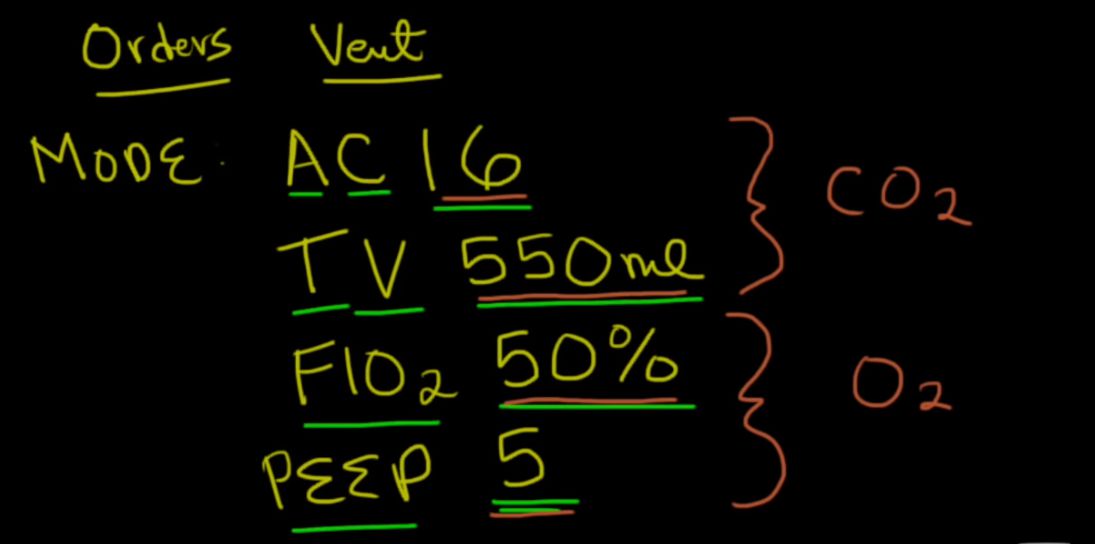 Orders Vent
MODE: AC 16
TV 550ml
CO2
FIO2 50%
PEEP 5
O2